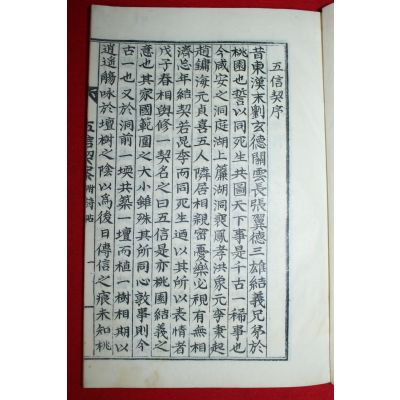 五信契序
昔東漢末劉玄德關雲長張翼德三雄結義兄弟於
桃園也誓以同死生共圖天下事是千古一稀事也
今咸安之洞庭湖上簾湖洞裵鳳孝洪泉元李秉起
趙鏞海元貞喜五人隣居相親密憂樂必視有無相
濟忘年結契若昆季而同死生過以其所以表情者
戊子春相與修一契名之曰五信是亦桃園結義之
意也其家國範圍之大小雖殊其所同心敦事則今
古一也又於洞前一堧共築一壇而植一樹相期以
逍遙觴咏於壇樹之陰以爲後日傳信之痕未知桃
五信契案
附詩帖
一